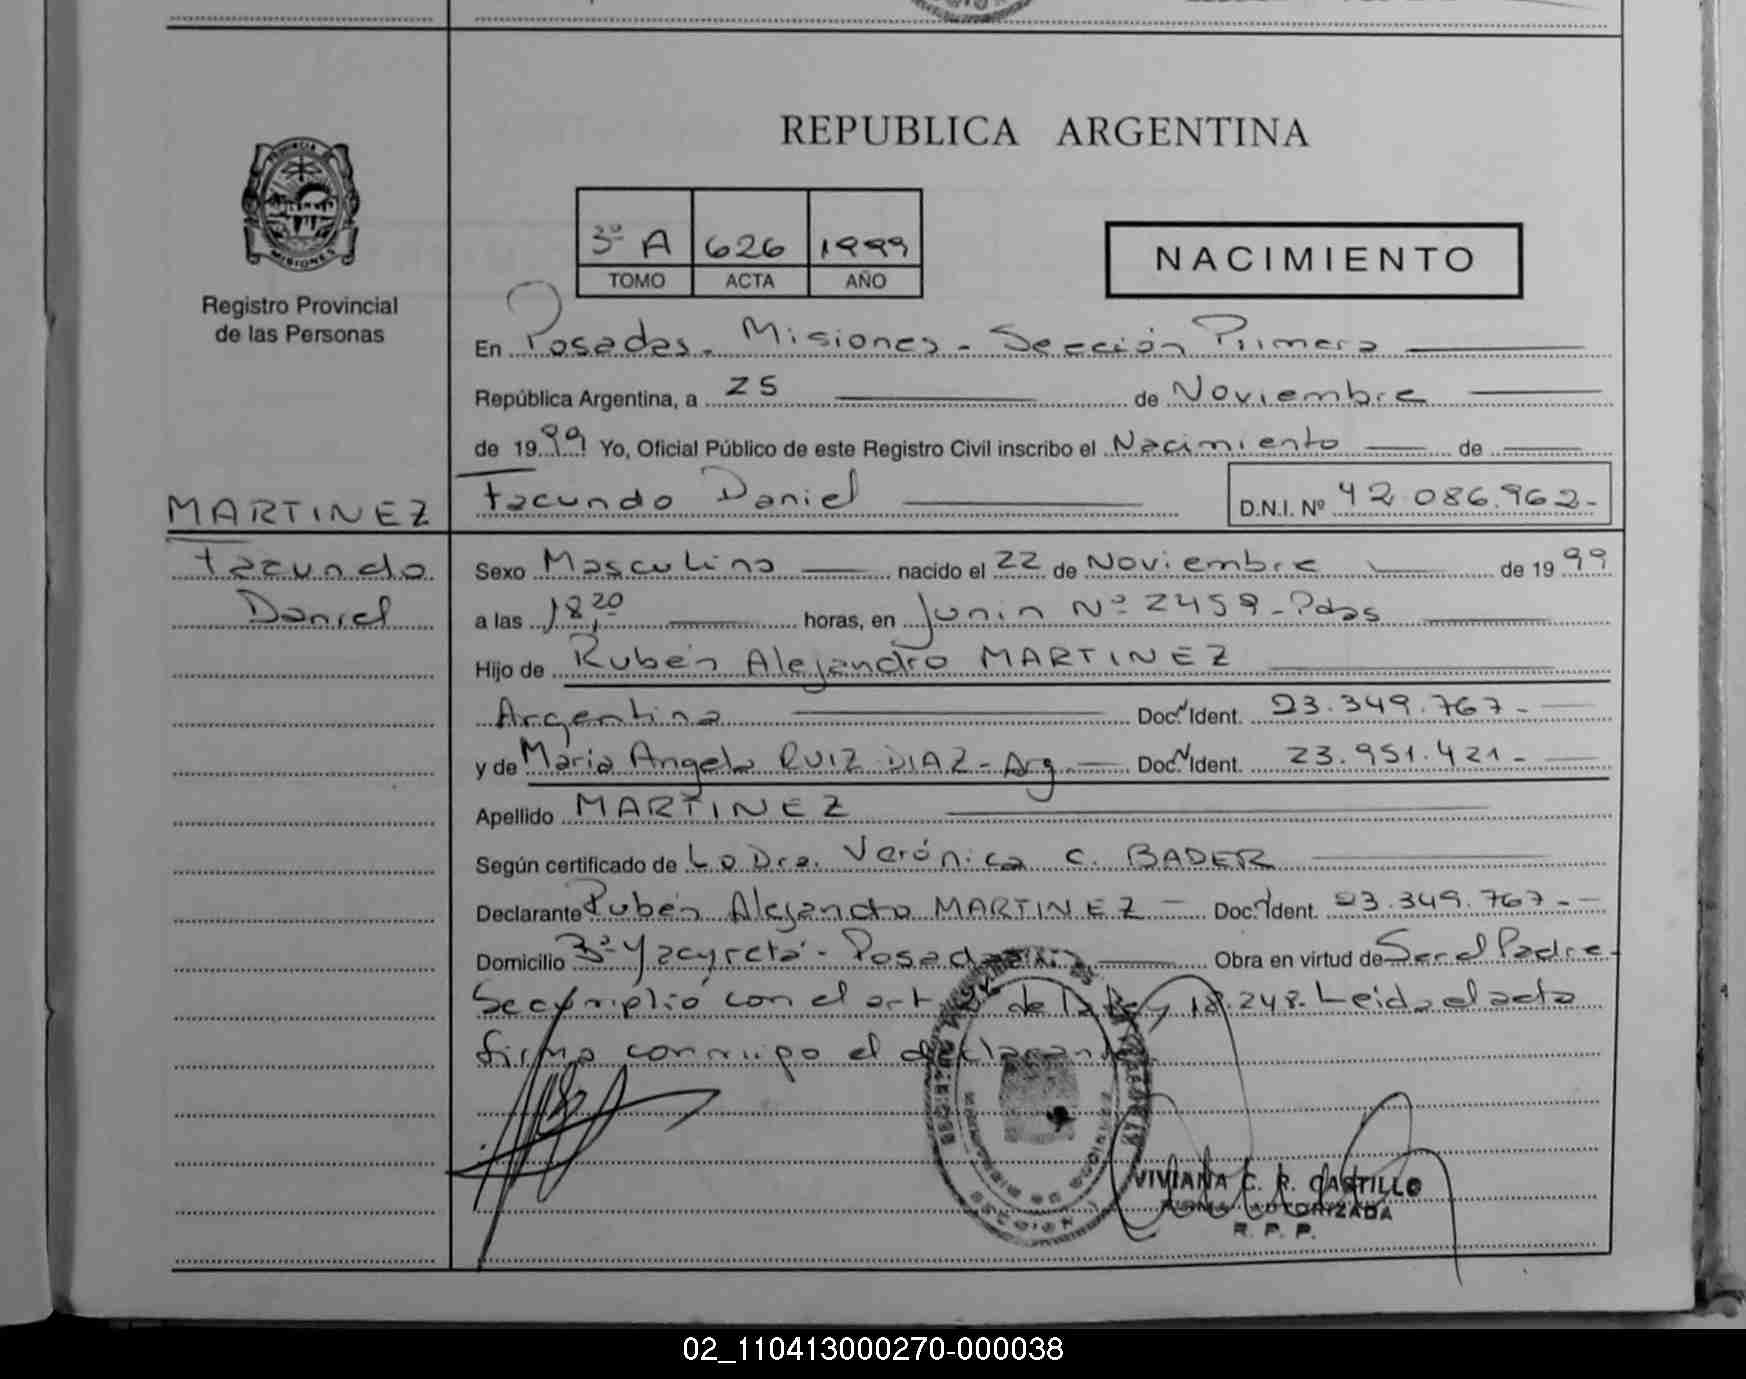 REPUBLICA ARGENTINA
PROVINCIA DE
MISIONES
Registro Provincial
de las Personas
3º A 626 1999
TOMO ACTA AÑO
NACIMIENTO
En Posadas. Misiones - Sección Primera
República Argentina, a 25 de Noviembre
de 1999 Yo, Oficial Público de este Registro Civil inscribo el Nacimiento de
Facundo Daniel D.N.I. Nº 42.086.962-
MARTINEZ
Facundo
Daniel
Sexo Masculino nacido el 22 de Noviembre de 1999
a las 18,20 horas, en Junin Nº 2459-Pdas
Hijo de Rubén Alejandro MARTINEZ
Argentina Doc. Ident. 23.349.767-
y de Maria Angela RUIZ DIAZ - Arg Doc. Ident. 23.951.421-
Apellido MARTINEZ
Según certificado de La Dra. Verónica C. BADER
Declarante Rubén Alejandro MARTINEZ - Doc. Ident. 23.349.767--
Domicilio Bº Yacyretá - Posadas Obra en virtud de Ser el Padre-
Se cumplió con el art de la Ley 18.248. Leida el acta
firma conmigo el declarante
VIVIANA C. R. CASTILLO
FIRMA AUTORIZADA
R. P. P.
02_110413000270-000038